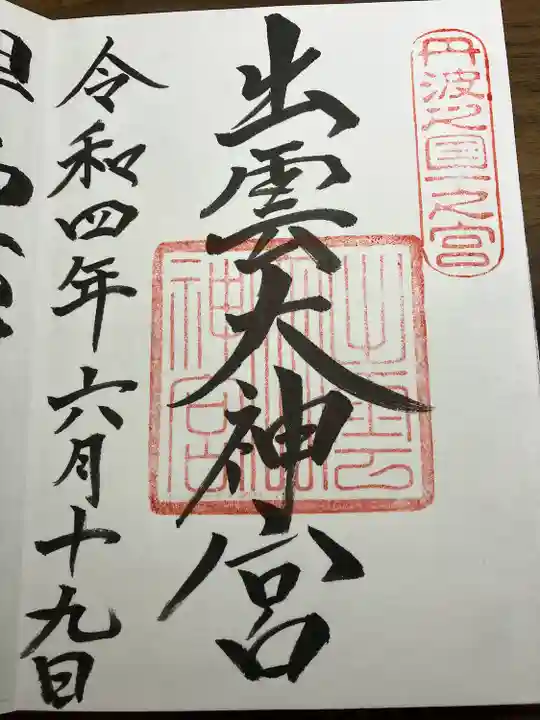 丹波之国一之宮
出雲大神宮
令和四年六月十九日